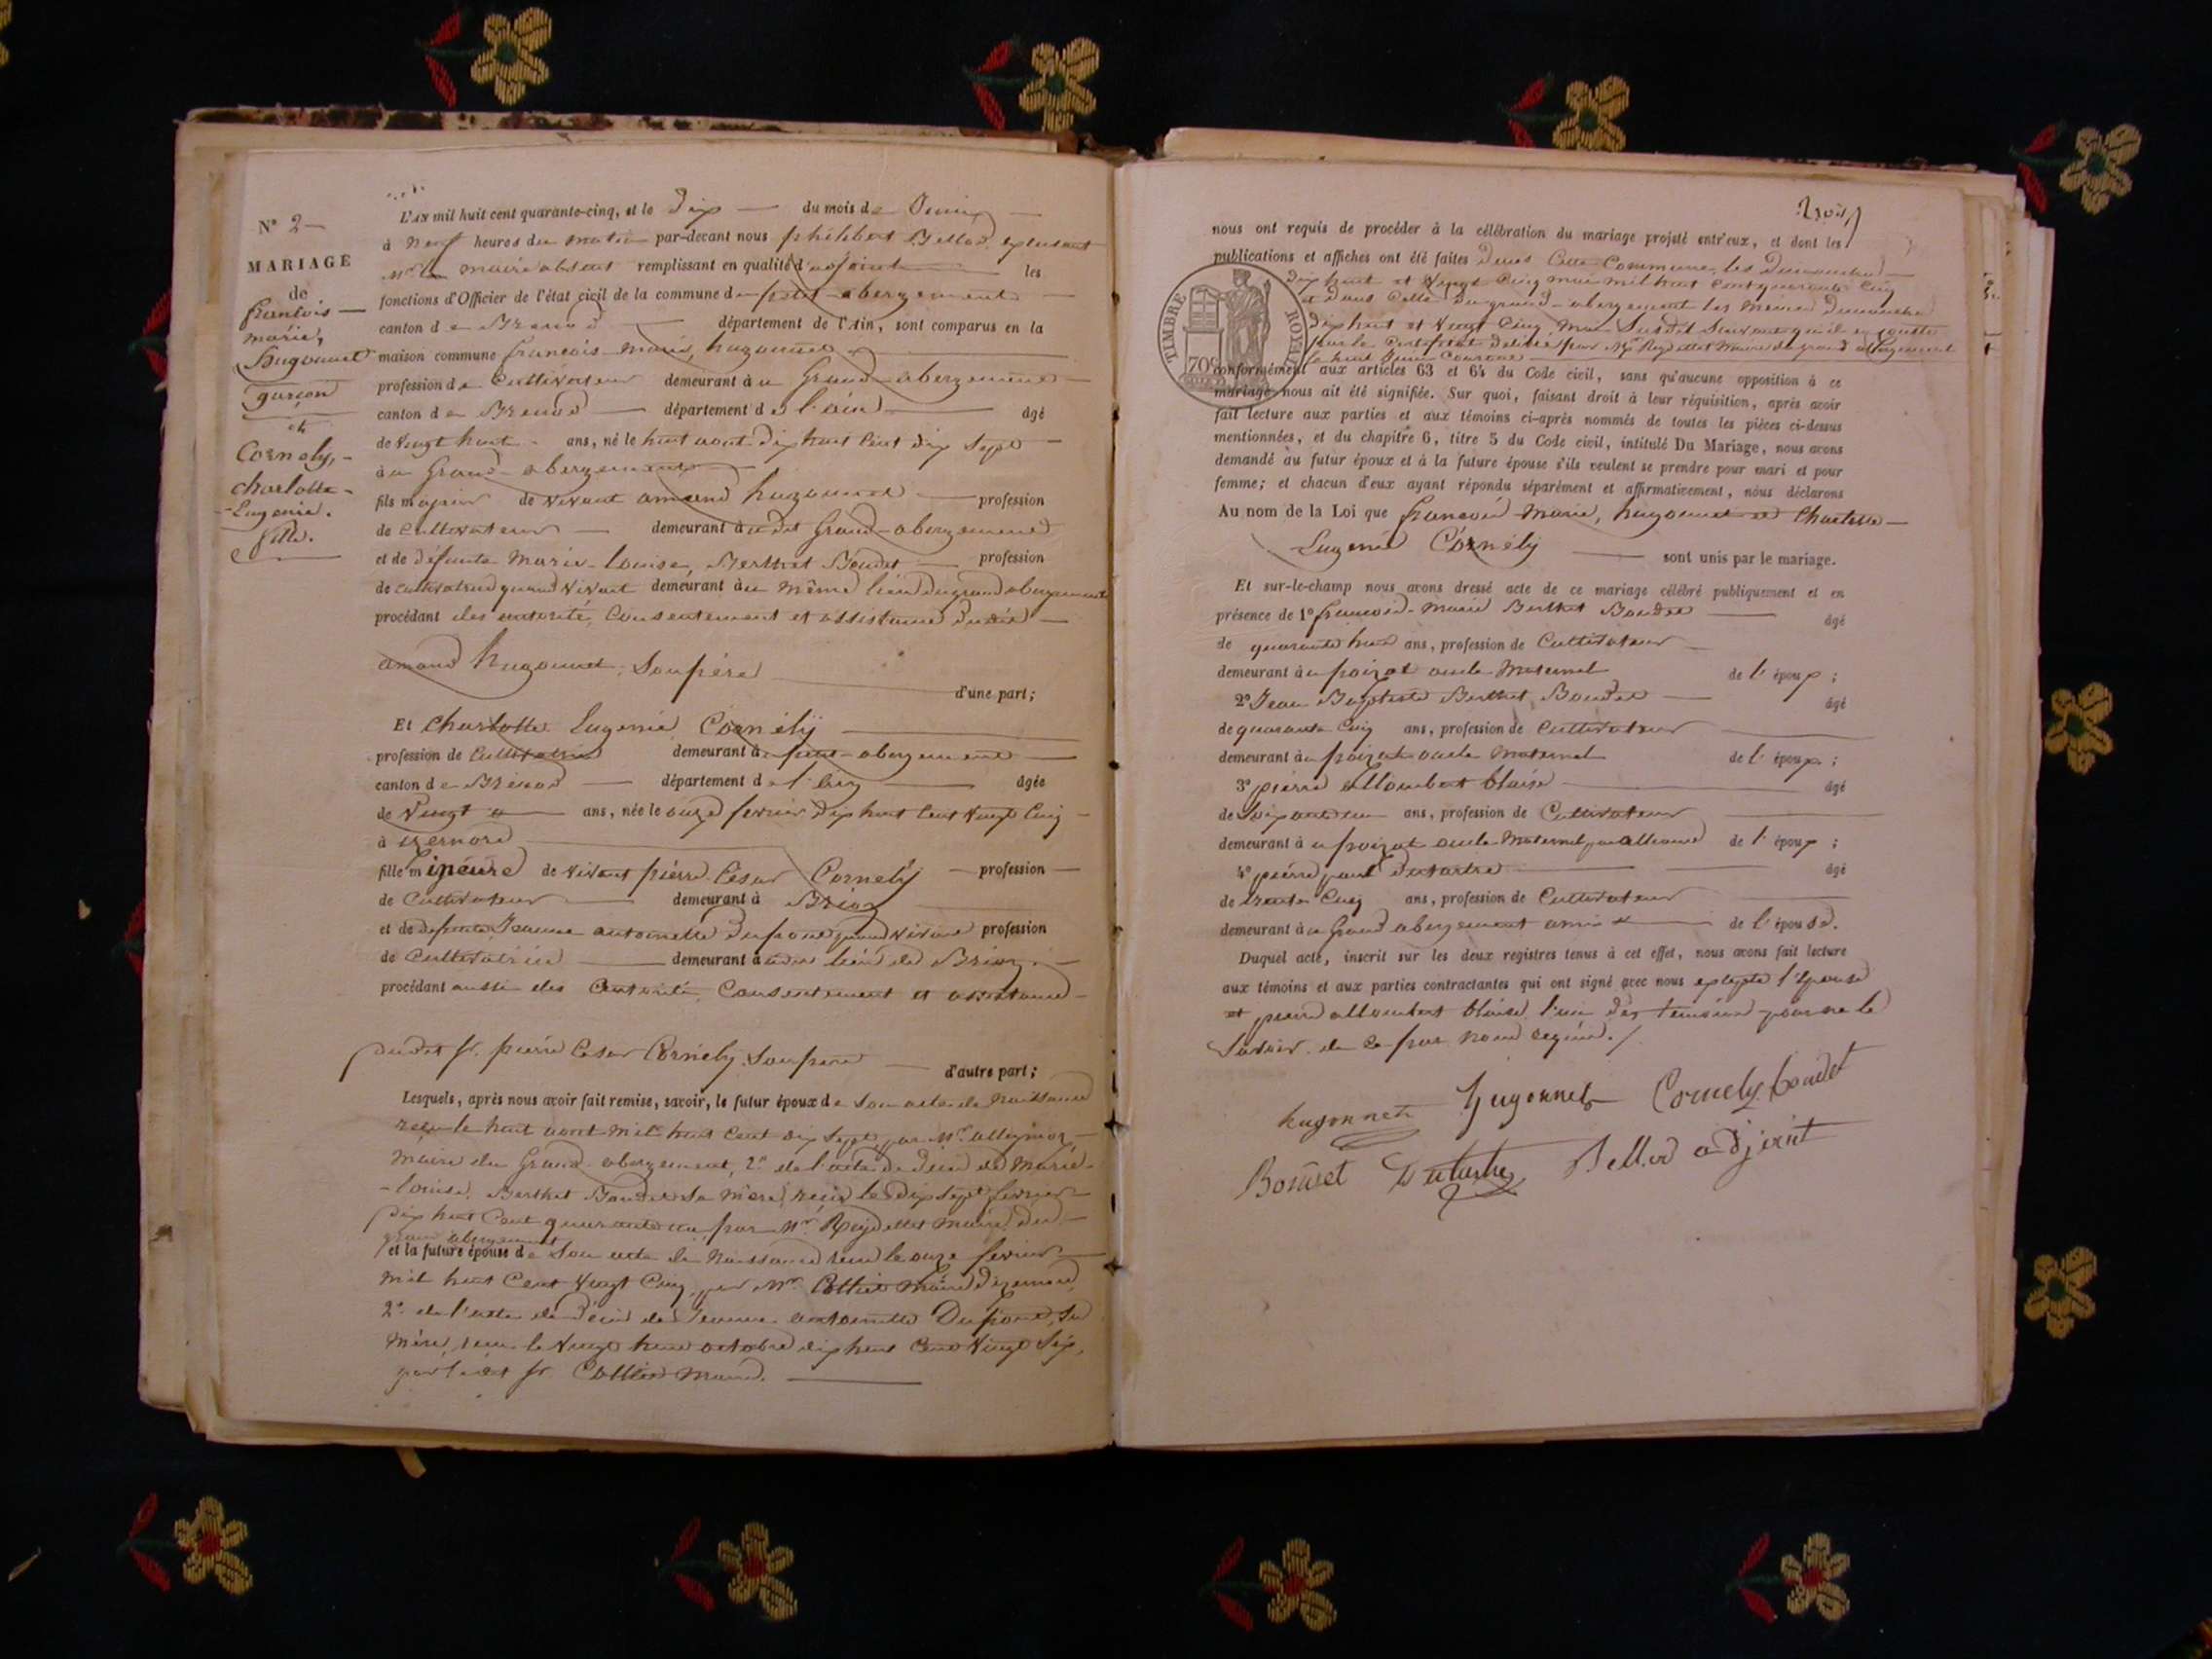 N° 2
MARIAGE
de
françois
marie,
hugonnet
garçon
et
Cornely,
charlotte
Eugenie.
fille.
L'AN mil huit cent quarante-cinq, et le dix du mois de Juin
à neuf heures du matin par-devant nous philibert Bellod,
Mr le maire absent remplissant en qualité d'adjoint les
fonctions d'Officier de l'état civil de la commune du petit abergement
canton de Brenod département de l'Ain, sont comparus en la
maison commune françois marie, hugonnet
profession de Cultivateur demeurant à u Grand abergement
canton de Brenod département de l'ain âgé
de vingt huit ans, né le huit aout dix huit cent dix sept
à u Grand abergement
fils majeur de vivant amand hugonnet profession
de Cultivateur demeurant à u dit Grand abergement
et de défunte Marie Louise, Berthet Boudet profession
de cultivatrice quand vivait demeurant à u même lieu du grand abergement
procédant des autorité, Consentement et assistance dudit
amand hugonnet, Son père
d'une part;
Et Charlotte Eugenie Cornély
profession de Cultivatrice demeurant à u petit abergement
canton de Brenod département de l'ain âgée
de vingt ans, née le onze fevrier dix huit cent vingt cinq
à izernore
fille mineure de vivant pierre César Cornely profession
de Cultivateur demeurant à Brion
et de defunte Jeanne antoinette Dupont quand vivait profession
de Cultivatrice demeurant à u dit lieu de Brion
procédant aussi des autorité, Consentement et assistance
dudit Sr. pierre César Cornély Son père
d'autre part;
Lesquels, après nous avoir fait remise, savoir, le futur époux de Son acte de naissance
reçu le huit aout mil huit cent dix sept par Mr.
maire du Grand abergement, 2° de l'acte de décès de Marie
Louise, Berthet Boudet Sa mère, reçu le dix sept fevrier
dix huit cent quarante un par Mr. Reydellet maire du
grand abergement
et la future épouse de Son acte de naissance reçu le onze fevrier
mil huit cent vingt cinq, par Mr. Collet Maire d'izernore,
2°. de l'acte de décès de Jeanne antoinette Dupont, Sa
mère, reçu le vingt huit octobre dix huit cent vingt six,
par ledit Sr. Collet maire.
nous ont requis de procéder à la célébration du mariage projeté entr'eux, et dont les
publications et affiches ont été faites dans Cette Commune, les Dimanches
dix huit et vingt cinq mai mil huit cent quarante cinq
et dans celle du grand abergement les mêmes dimanches
dix huit et vingt cinq mai Susdit Suivant qu'il en conste
par le certificat délivré par Mr. Reydellet maire du grand abergement
le huit Juin Courant
TIMBRE ROYAL
70c
conformément aux articles 63 et 64 du Code civil, sans qu'aucune opposition à ce
mariage nous ait été signifiée. Sur quoi, faisant droit à leur réquisition, après avoir
fait lecture aux parties et aux témoins ci-après nommés de toutes les pièces ci-dessus
mentionnées, et du chapitre 6, titre 5 du Code civil, intitulé Du Mariage, nous avons
demandé au futur époux et à la future épouse s'ils veulent se prendre pour mari et pour
femme; et chacun d'eux ayant répondu séparément et affirmativement, nous déclarons
Au nom de la Loi que françois marie, hugonnet et Charlotte
Eugenie Cornély sont unis par le mariage.
Et sur-le-champ nous avons dressé acte de ce mariage célébré publiquement et en
présence de 1° françois marie Berthet Boudet âgé
de quarante huit ans, profession de Cultivateur
demeurant à u poizat oncle Maternel de l'époux;
2° Jean Baptiste Berthet, Boudet âgé
de quarante cinq ans, profession de Cultivateur
demeurant à u poizat oncle Maternel de l'époux;
3° pierre allombert blaise âgé
de Soixante un ans, profession de Cultivateur
demeurant à u poizat oncle Maternel par alliance de l'époux;
4° pierre paul Dutartre âgé
de trente cinq ans, profession de Cultivateur
demeurant à u Grand abergement ami de l'épouse.
Duquel acte, inscrit sur les deux registres tenus à cet effet, nous avons fait lecture
aux témoins et aux parties contractantes qui ont signé avec nous excepté l'épouse
et pierre allombert blaise, l'un des temoins pour ne le
Savoir de ce par nous requis./.
hugonnet hugonnet Cornely boudet
Boudet Dutartre Bellod adjoint